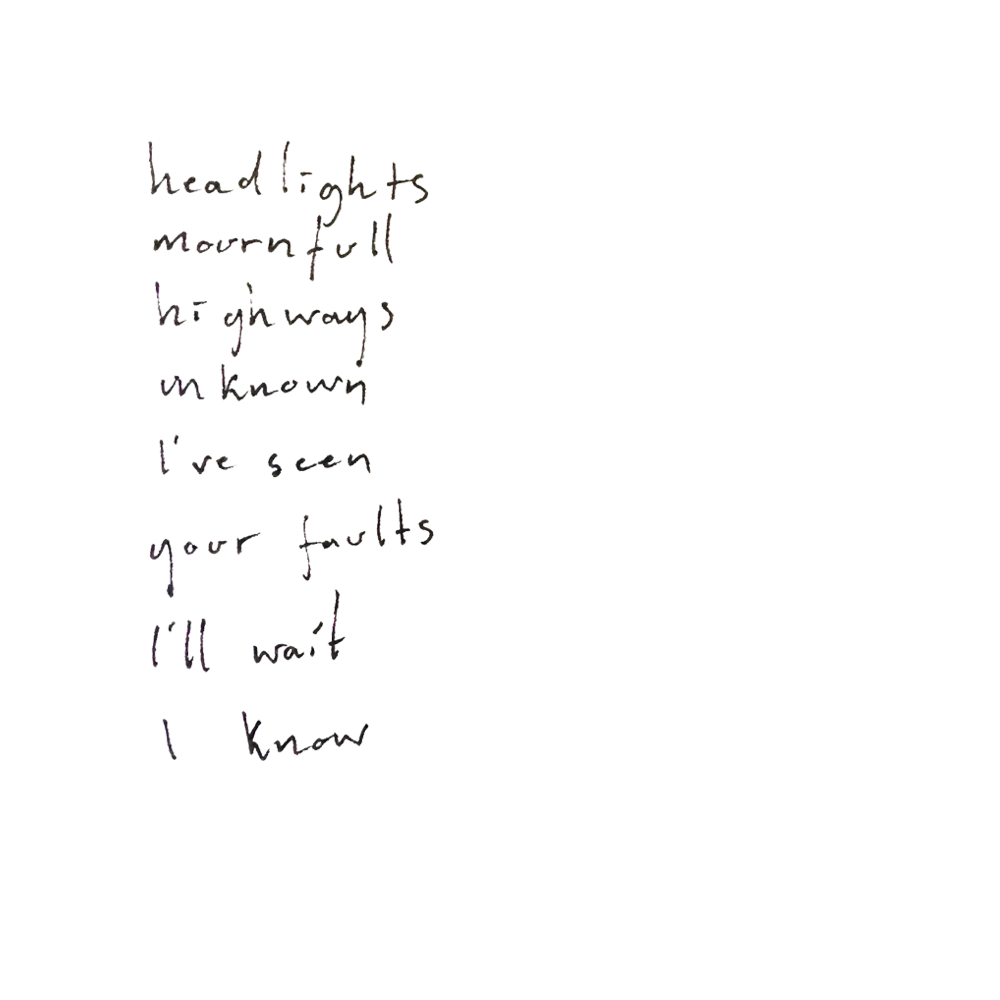 headlights
mournfull
highways
unknown
I've seen
your faults
I'll wait
I know